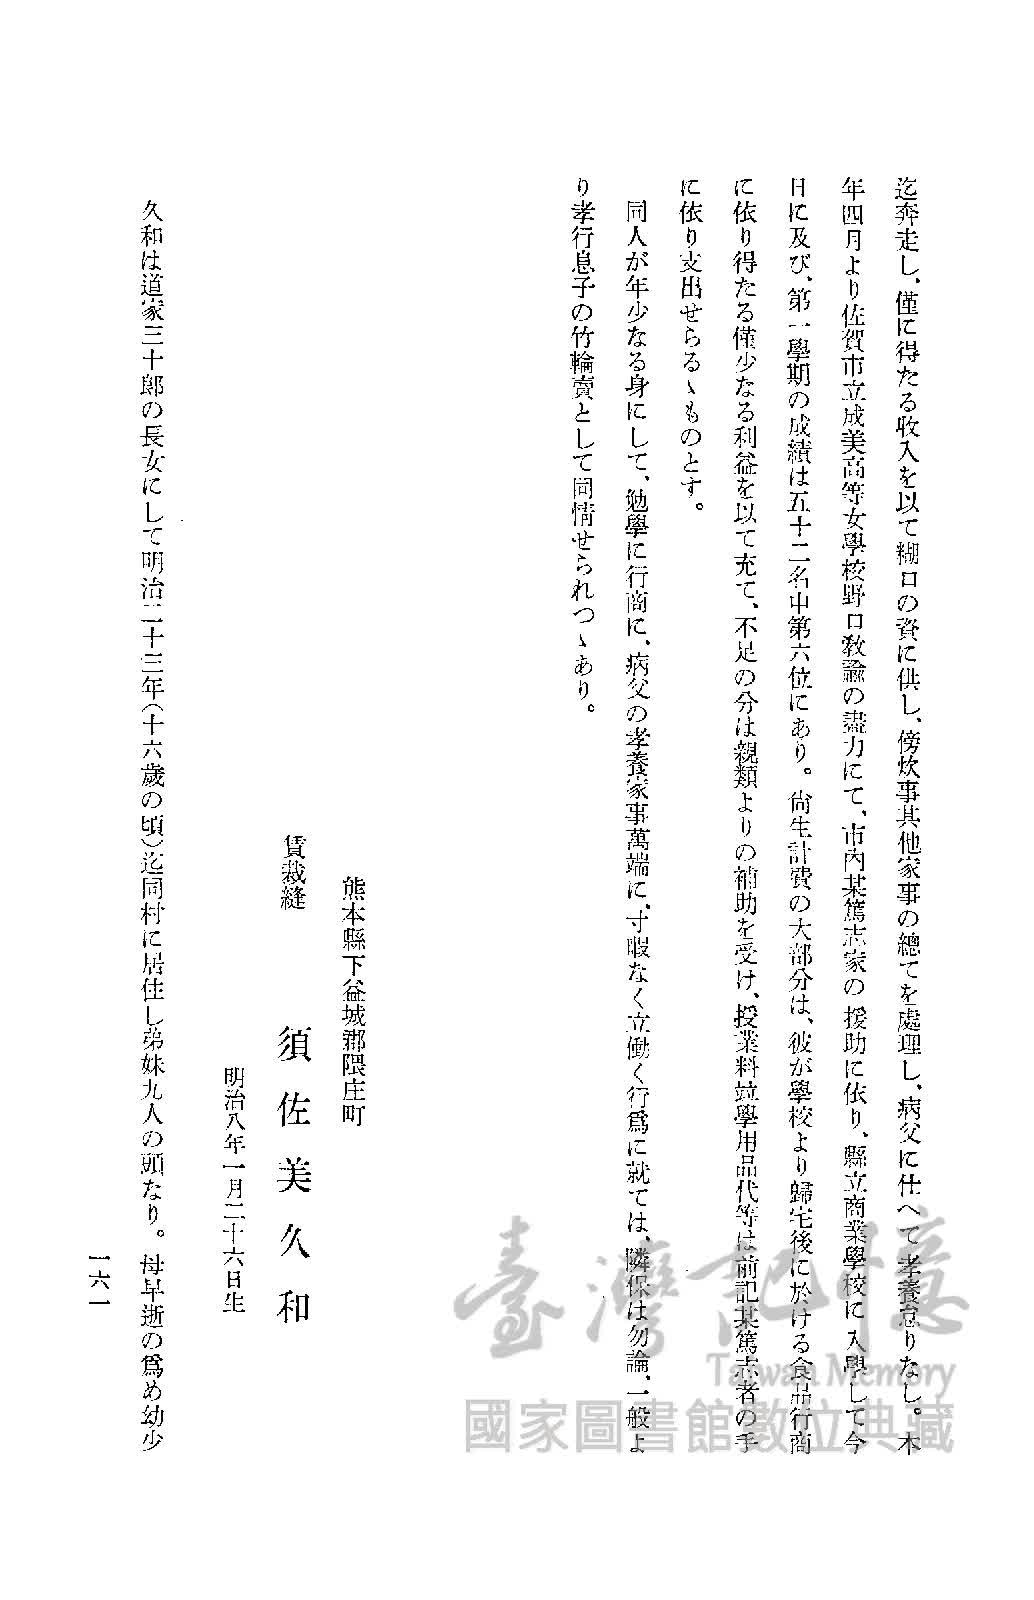 迄奔走し、僅に得たる收入を以て糊口の資に供し、傍炊事其他家事の總てを處理し、病父に仕へて孝養怠りなし。本
年四月より佐賀市立成美高等女學校野口敎諭の盡力にて、市內某篤志家の援助に依り、縣立商業學校に入學して今
日に及び、第一學期の成績は五十二名中第六位にあり。尙生計費の大部分は、彼が學校より歸宅後に於ける食品行商
に依り得たる僅少なる利益を以て充て、不足の分は親類よりの補助を受け、授業料竝學用品代等は前記某篤志者の手
に依り支出せらるゝものとす。
同人が年少なる身にして、勉學に行商に、病父の孝養家事萬端に、寸暇なく立働く行爲に就ては、隣保は勿論、一般よ
り孝行息子の竹輪賣として同情せられつゝあり。
熊本縣下益城郡隈庄町
賃裁縫 須佐美久和
明治八年一月二十六日生
久和は道家三十郎の長女にして明治二十三年(十六歲の頃)迄同村に居住し弟妹九人の頭なり。母早逝の爲め幼少
一六一
臺灣記憶
Taiwan Memory
國家圖書館數位典藏